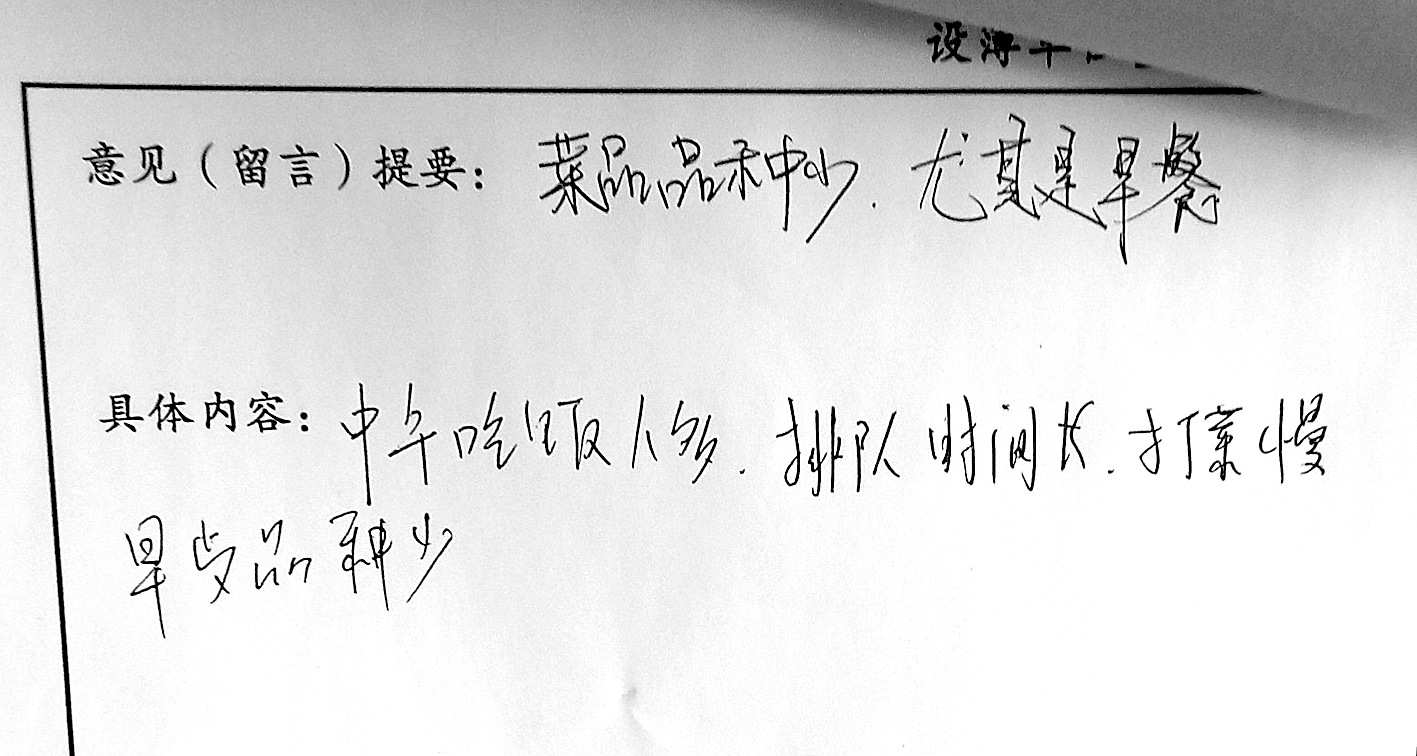 意见（留言）提要：菜品品种少.尤其是早餐
具体内容：中午吃饭人多.排队时间长.打菜慢
早步品种少